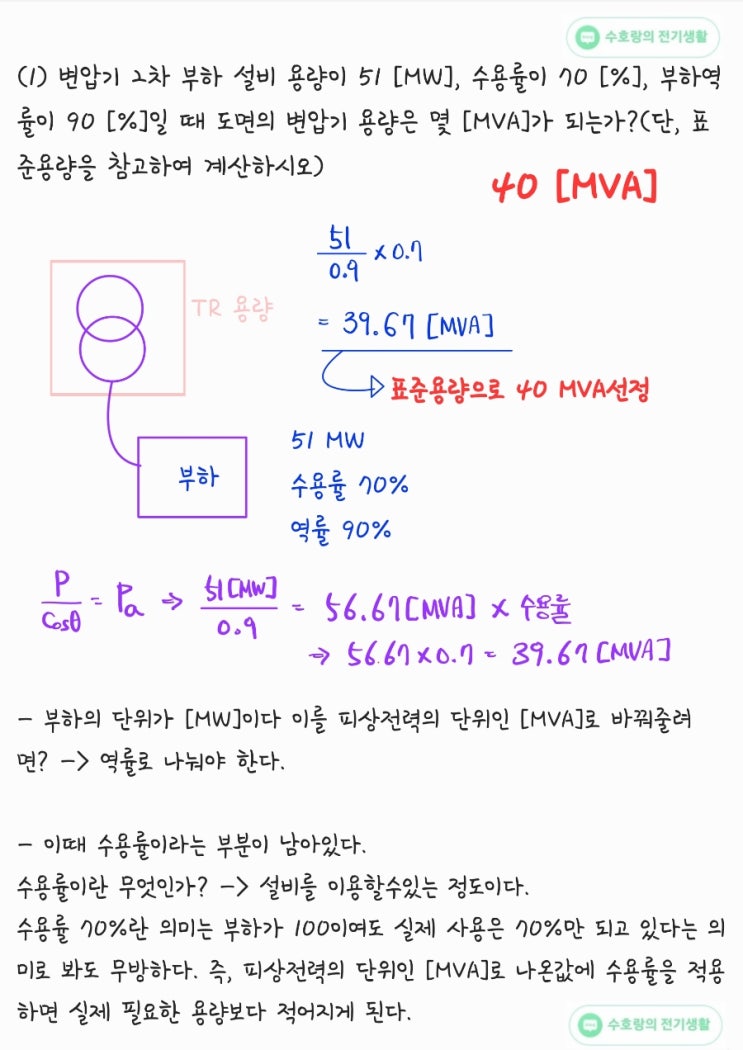 수호랑의 전기생활
(1) 변압기 2차 부하 설비 용량이 51 [MW], 수용률이 70 [%], 부하역
률이 90 [%]일 때 도면의 변압기 용량은 몇 [MVA]가 되는가?(단, 표
준용량을 참고하여 계산하시오)
40 [MVA]
51/0.9 x 0.7
TR 용량
= 39.67 [MVA]
표준용량으로 40 MVA선정
51 MW
부하
수용률 70%
역률 90%
P/cosθ = Pa ⇒ 51[MW]/0.9 = 56.67[MVA] x 수용률
→ 56.67 x 0.7 = 39.67[MVA]
- 부하의 단위가 [MW]이다 이를 피상전력의 단위인 [MVA]로 바꿔줄려
면? -> 역률로 나눠야 한다.
- 이때 수용률이라는 부분이 남아있다.
수용률이란 무엇인가? -> 설비를 이용할수있는 정도이다.
수용률 70%란 의미는 부하가 100이여도 실제 사용은 70%만 되고 있다는 의
미로 봐도 무방하다. 즉, 피상전력의 단위인 [MVA]로 나온값에 수용률을 적용
하면 실제 필요한 용량보다 적어지게 된다.
수호랑의 전기생활